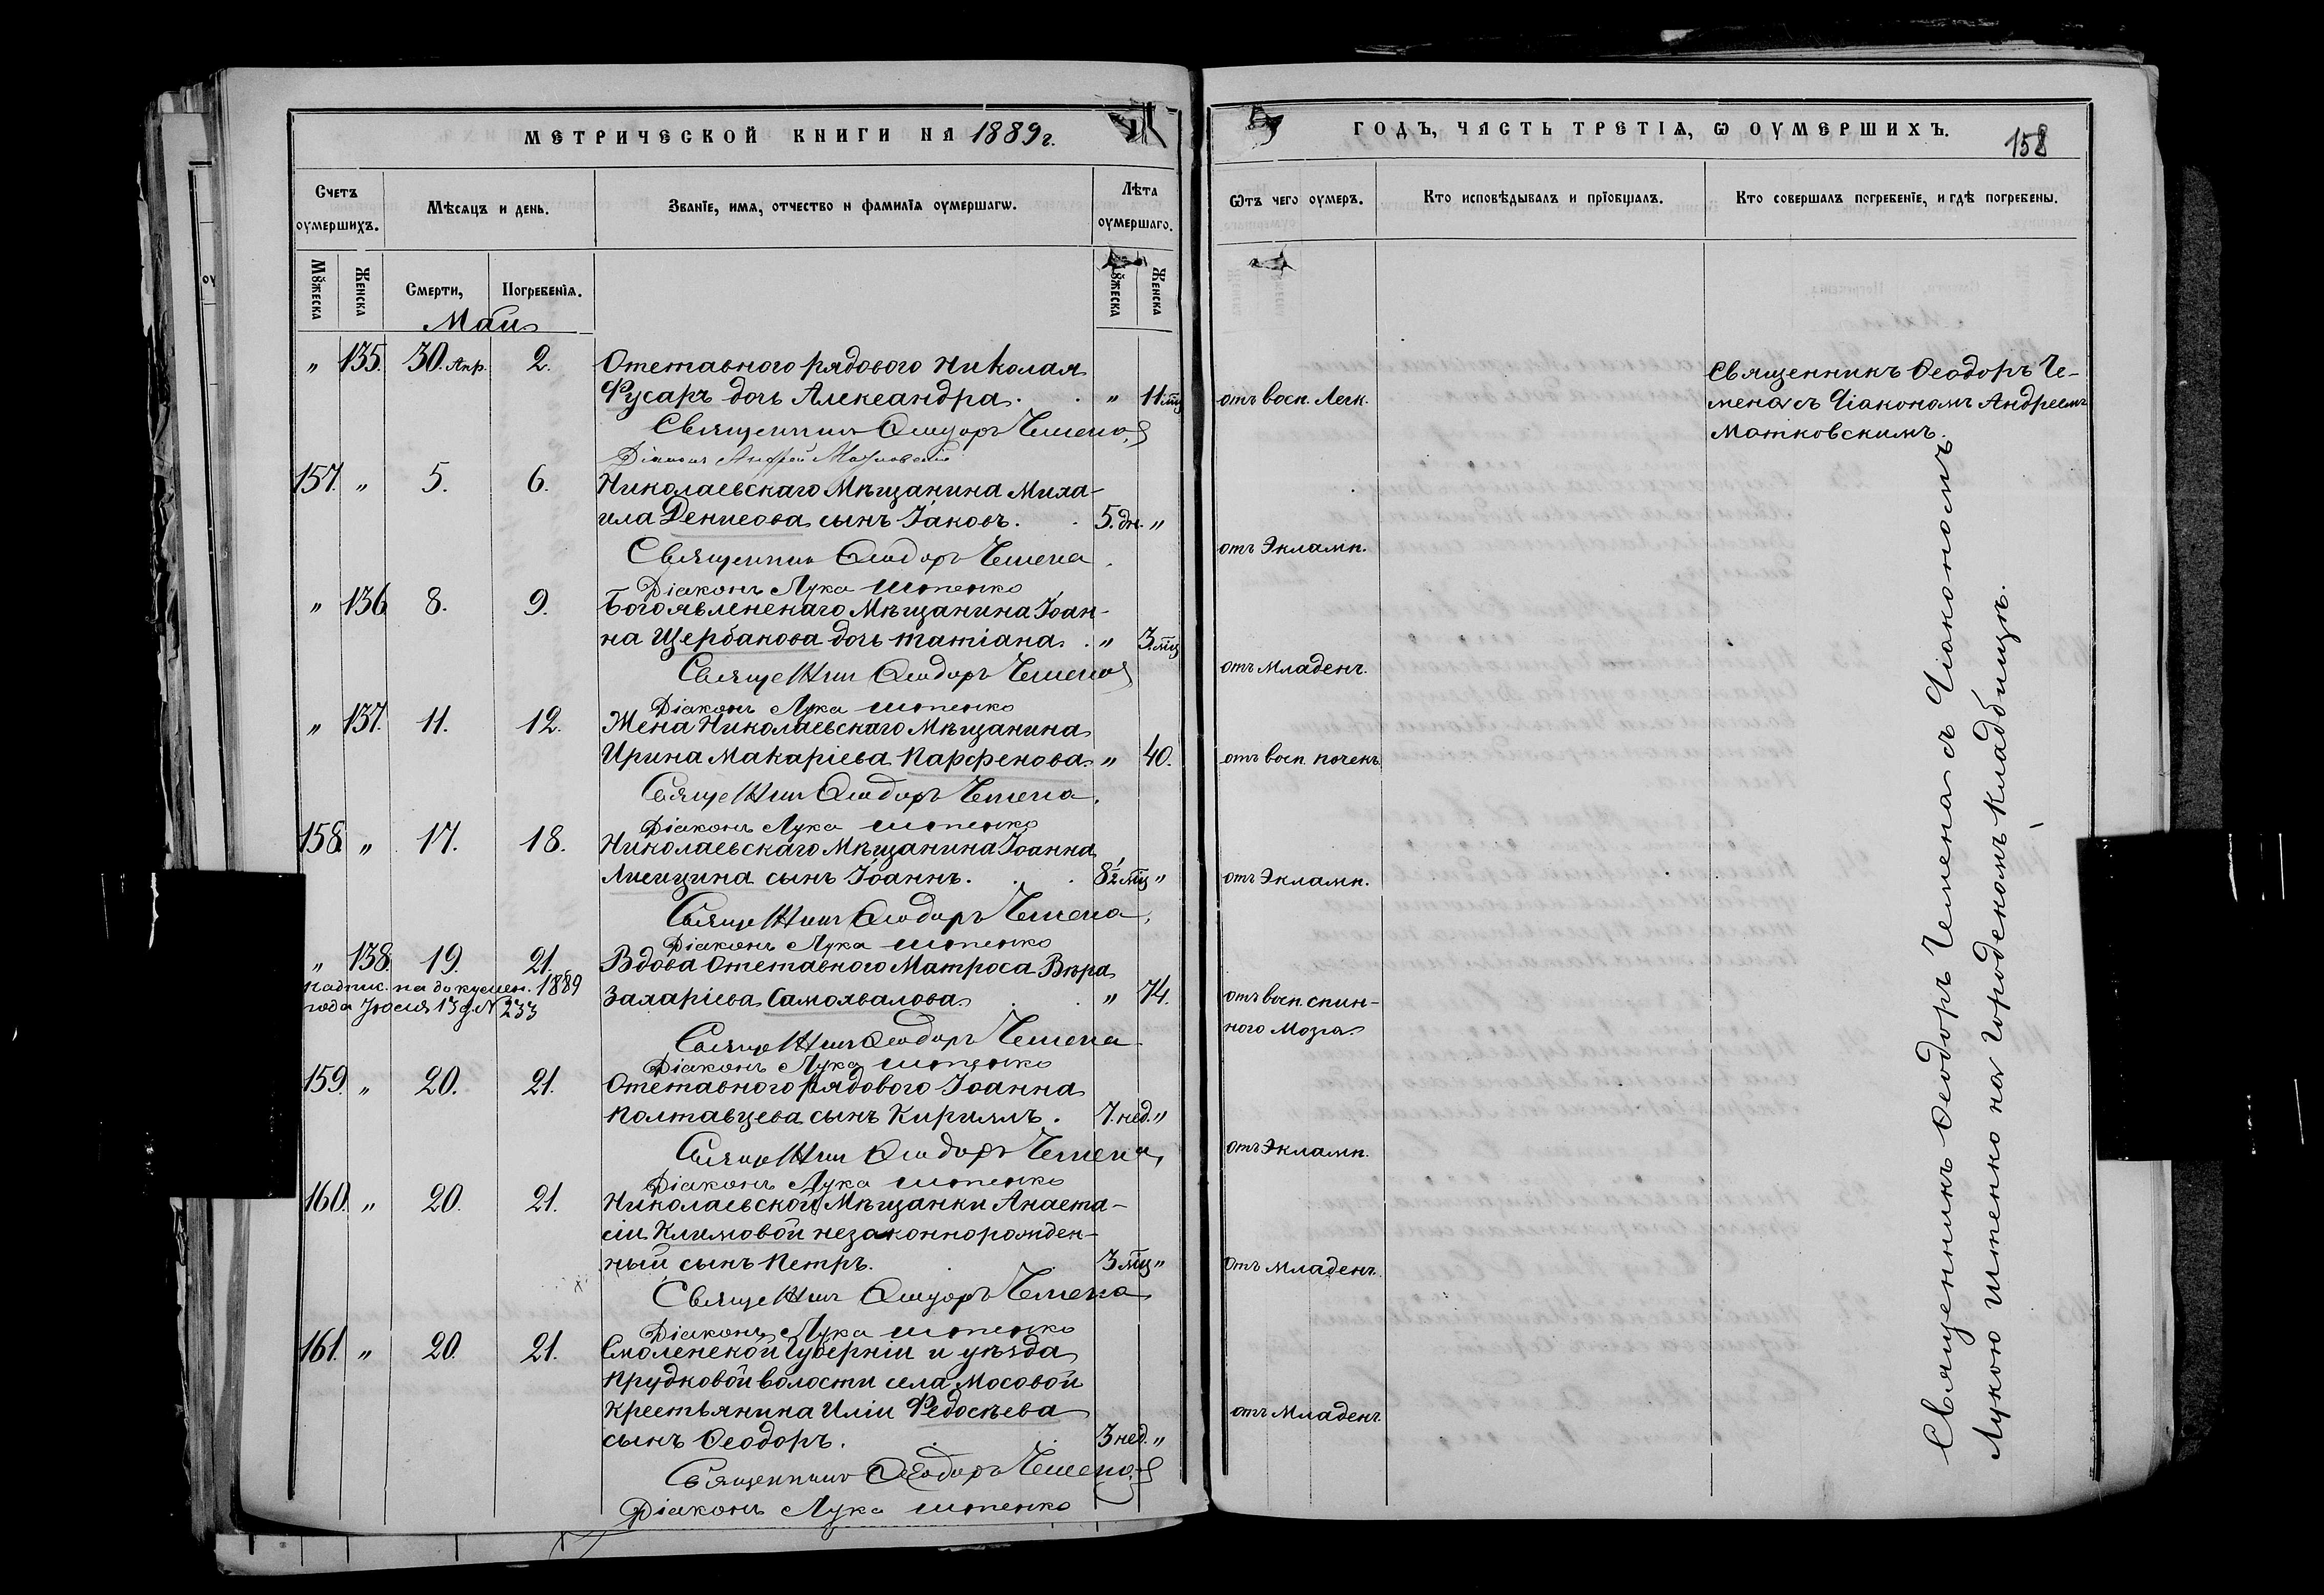 МЕТРИЧЕСКОЙ КНИГИ НА 1889 г.
Счетъ оумершихъ.
Мѣсяцъ и день.
Званїе, имя, отчество и фамилїя оумершагѡ.
Лѣта оумершаго.
Мꙋжеска
Женска
Смерти,
Погребенїя.
Мꙋжеска
Женска
Маій
" 135. 30. Апр. 2. Отставного рядового Николая
Фусаръ дочь Александра. " 11. мц
Священникъ Ѳеодоръ Чемена
Діаконъ Андрей Матковскій
157. " 5. 6. Николаевскаго Мѣщанина Миха-
ила Денисова сынъ Іаковъ. 5. дн. "
Священникъ Ѳеодоръ Чемена
Діаконъ Лука Штенко
" 136 8. 9. Богоявленскаго Мѣщанина Іоан-
на Щербакова дочь Татіана. " 3. мц
Священникъ Ѳеодоръ Чемена
Діаконъ Лука Штенко
" 137. 11. 12. Жена Николаевскаго Мѣщанина
Ирина Макаріева Парфенова. " 40.
Священникъ Ѳеодоръ Чемена
Діаконъ Лука Штенко
158. " 17. 18. Николаевскаго Мѣщанина Іоанна
Лисицина сынъ Іоаннъ. 8½ мц "
Священникъ Ѳеодоръ Чемена
Діаконъ Лука Штенко
" 138. 19. 21. Вдова Отставного Матроса Вѣра
Надпис. на докумен. 1889
года Іюля 13 д. № 233
Захаріева Самохвалова " 74.
Священникъ Ѳеодоръ Чемена
Діаконъ Лука Штенко
159. " 20. 21. Отставного рядового Іоанна
Полтавцева сынъ Кириллъ. 7. нед. "
Священникъ Ѳеодоръ Чемена
Діаконъ Лука Штенко
160. " 20. 21. Николаевской Мѣщанки Анаста-
сіи Климовой незаконнорожден-
ный сынъ Петръ. 3 мц "
Священникъ Ѳеодоръ Чемена
Діаконъ Лука Штенко
161. " 20. 21. Смоленской Губерніи и уѣзда
Прудковой волости села Мосовой
крестьянина Иліи Федосѣева
сынъ Ѳеодоръ. 3 нед. "
Священникъ Ѳеодоръ Чемена
Діаконъ Лука Штенко
ГОДЪ, ЧАСТЬ ТРЕТІѦ, Ѡ ОУМЕРШИХЪ.
158
Ѿтъ чего оумеръ.
Кто исповѣдывалъ и прїобщалъ.
Кто совершалъ погребенїе, и гдѣ погребены.
отъ восп. Легк.
отъ Эклампс.
отъ Младенч.
отъ восп. почекъ
отъ Эклампс.
отъ восп. спин-
ного Мозга
отъ Эклампс.
отъ Младенч.
отъ Младенч.
Священникъ Ѳеодоръ Че-
мена съ Діакономъ Андреемъ
Матковскимъ.
Священникъ Ѳеодоръ Чемена съ Діакономъ
Лукою Штенко на Городскомъ кладбищѣ.